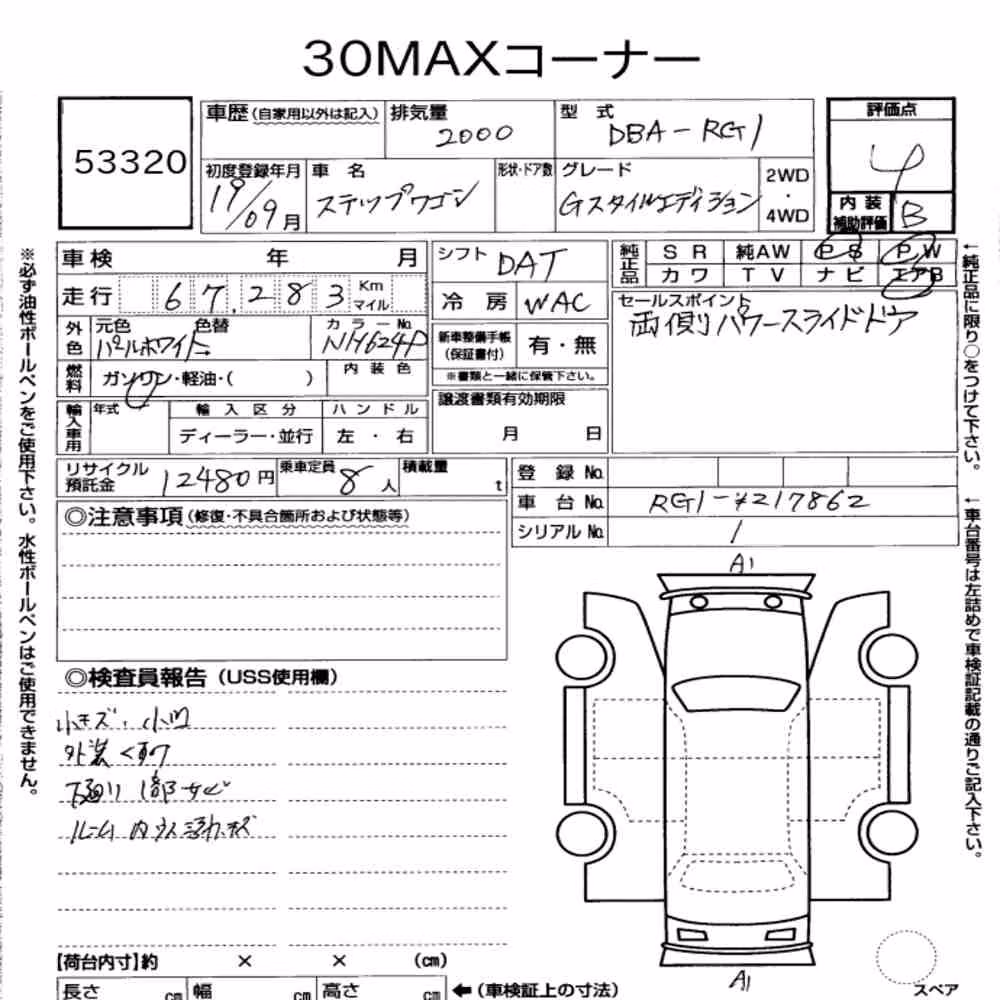 30MAXコーナー
53320
車歴(自家用以外は記入) 排気量 2000 型式 DBA-RG1 評価点 4
初度登録年月 19/09月 車名 ステップワゴン 形状・ドア数 グレード Gスタイルエディション 2WD・4WD
内装補助評価 B
車検 年 月 シフト DAT 純正品 SR 純AW PS PW
カワ TV ナビ エアB
走行 67,283 Km マイル 冷房 WAC
セールスポイント
両側パワースライドドア
外色 元色 パールホワイト 色替 カラーNo. NH624P
新車整備手帳(保証書付) 有・無
※書類と一緒に保管下さい。
燃料 ガソリン・軽油・( ) 内装色
譲渡書類有効期限
月 日
輸入車用 年式 輸入区分 ハンドル
ディーラー・並行 左・右
リサイクル預託金 12480円 乗車定員 8人 積載量 t
登録No.
車台No. RG1-*217862
シリアルNo. 1
◎注意事項(修復・不具合箇所および状態等)
◎検査員報告(USS使用欄)
小キズ・小凹
外装くすり
下廻り1部サビ
ルーム内ウス汚れキズ
A1
A1
【荷台内寸】約 × × (cm)
長さ cm 幅 cm 高さ cm ←(車検証上の寸法)
スペア
※必ず油性ボールペンをご使用下さい。水性ボールペンはご使用できません。
←純正品に限り○をつけて下さい。
←車台番号は左詰めで車検証記載の通りご記入下さい。